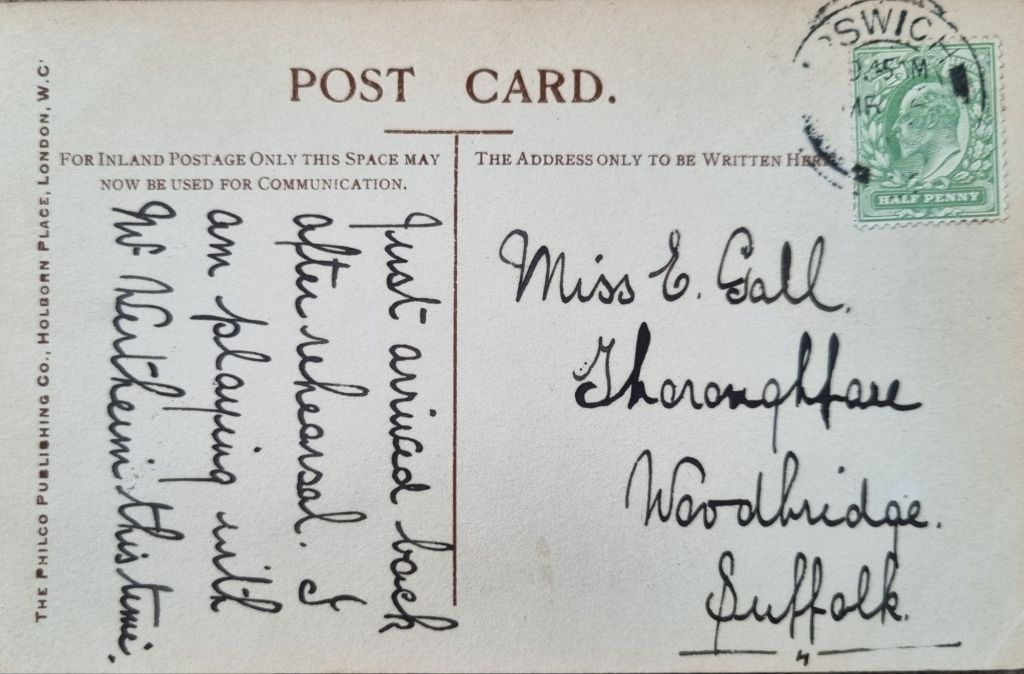 POST CARD.
FOR INLAND POSTAGE ONLY THIS SPACE MAY
NOW BE USED FOR COMMUNICATION.
THE ADDRESS ONLY TO BE WRITTEN HERE
THE PHILCO PUBLISHING CO., HOLBORN PLACE, LONDON, W.C.
Just arrived back
after rehearsal. I
am playing with
Mr Wertheim this time.
Miss E. Gall.
Thoroughfare
Woodbridge.
Suffolk.
HALF PENNY